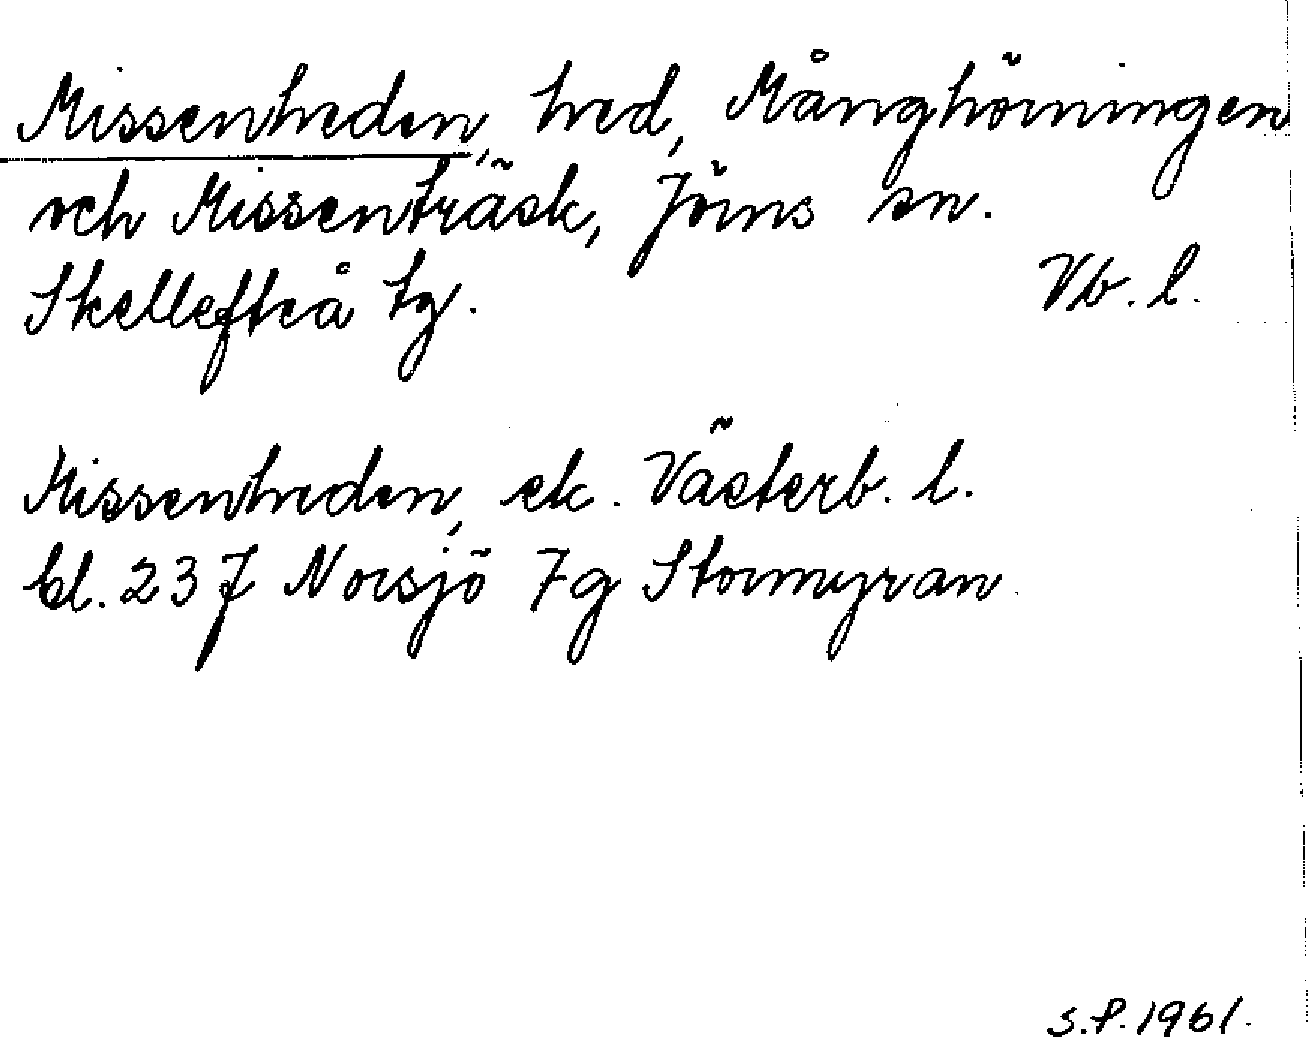 Missenheden, hed, Månghörningen
och Missenträsk, Jörns sn.
Skellefteå tg. Vb. l.
Missenheden, ek. Västerb. l.
bl. 23 J Norsjö 7g Stormyran
S.P. 1961.